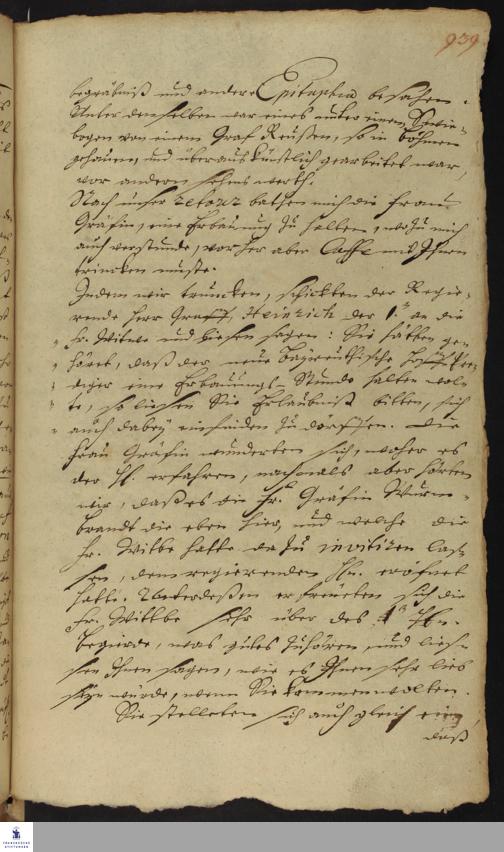 939.
begräbniß und andere Epitaphia besahen.
Unter denselben war eines unter einem Schwie-
bogen von einem Graf Reußen, so in böhmen
gehauen, und überaus künstlich gearbeitet war,
vor andern sehens werth.
Nach unser retour bathen mich die Frau
Gräfin, eine Erbauung zu halten, wozu mich
auch verstunde, vorher aber Caffe mit Ihnen
trincken muste.
Indem wir truncken, schickten der Regie-
rende Herr Graff, Heinrich der 1. an die
" Fr. Witwe und ließen sagen: Sie hätten ge-
" höret, daß der neue bayreuthische Hoff Pre-
" diger eine Erbauungs-Stunde halten wol-
" te, so ließen Sie Erlaubniß bitten, sich
" auch dabey einfinden zu dörffen. Die
Frau Gräfin wunderten sich, woher es
der H. erfahren, nachmals aber hörten
wir, daß es die Fr. Gräfin Wurm-
brandt die eben hier, und welche die
Fr. Witbe hatte dazu invitiren las-
sen, dem regierenden Hn. eröfnet
hatte. Unterdeßen erfreueten sich die
Fr. Wittbe sehr über des Hn.
Begierde, was gutes zuhören, und ließ-
sen Ihnen sagen, wie es Ihnen sehr lieb
seyn würde, wenn Sie kommen wolten.
Sie stelleten sich auch gleich ein,
daß
FRANCKESCHE
STIFTUNGEN